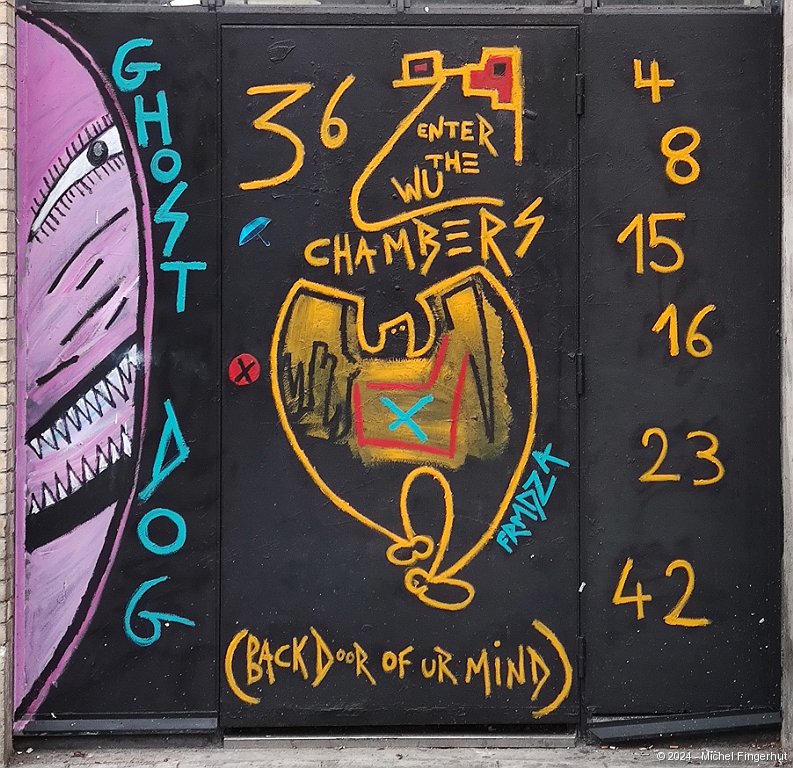 GHOST DOG
36
ENTER
THE
WU
CHAMBERS
X
X
FRMDZA
(BACKDooR OF UR MIND)
4
8
15
16
23
42
© 2024 - Michel Fingerhut